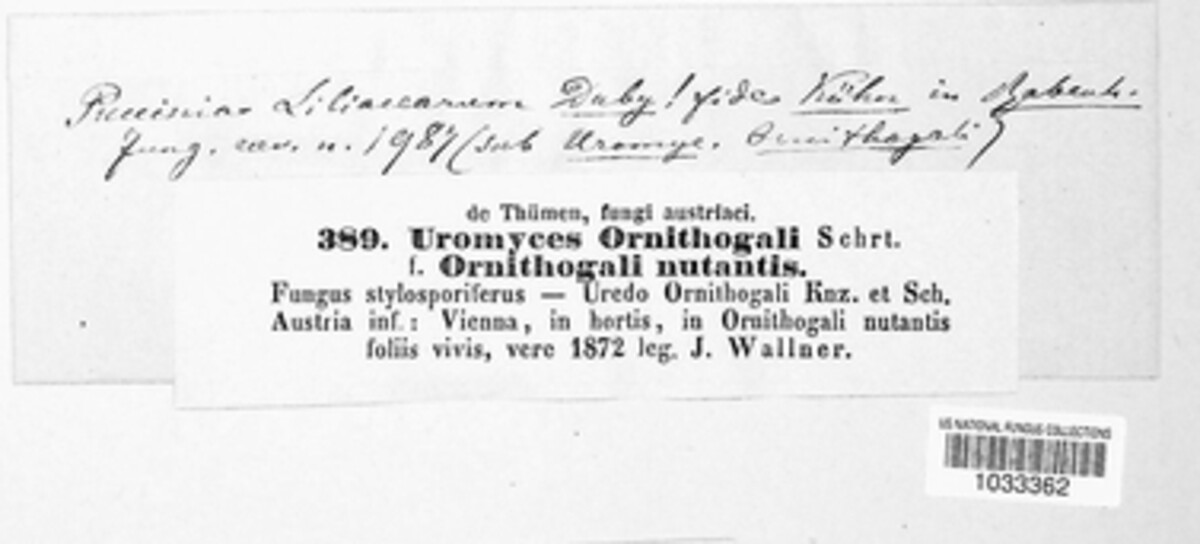 Puccinia Liliacearum Duby! fide Kühn in Rabenh.
Fung. eur. n. 1987 (sub Uromyc. Ornithogali)
de Thümen, fungi austriaci.
389. Uromyces Ornithogali Schrt.
f. Ornithogali nutantis.
Fungus stylosporiferus — Uredo Ornithogali Knz. et Sch.
Austria inf.: Vienna, in hortis, in Ornithogali nutantis
foliis vivis, vere 1872 leg. J. Wallner.
US NATIONAL FUNGUS COLLECTIONS
1033362